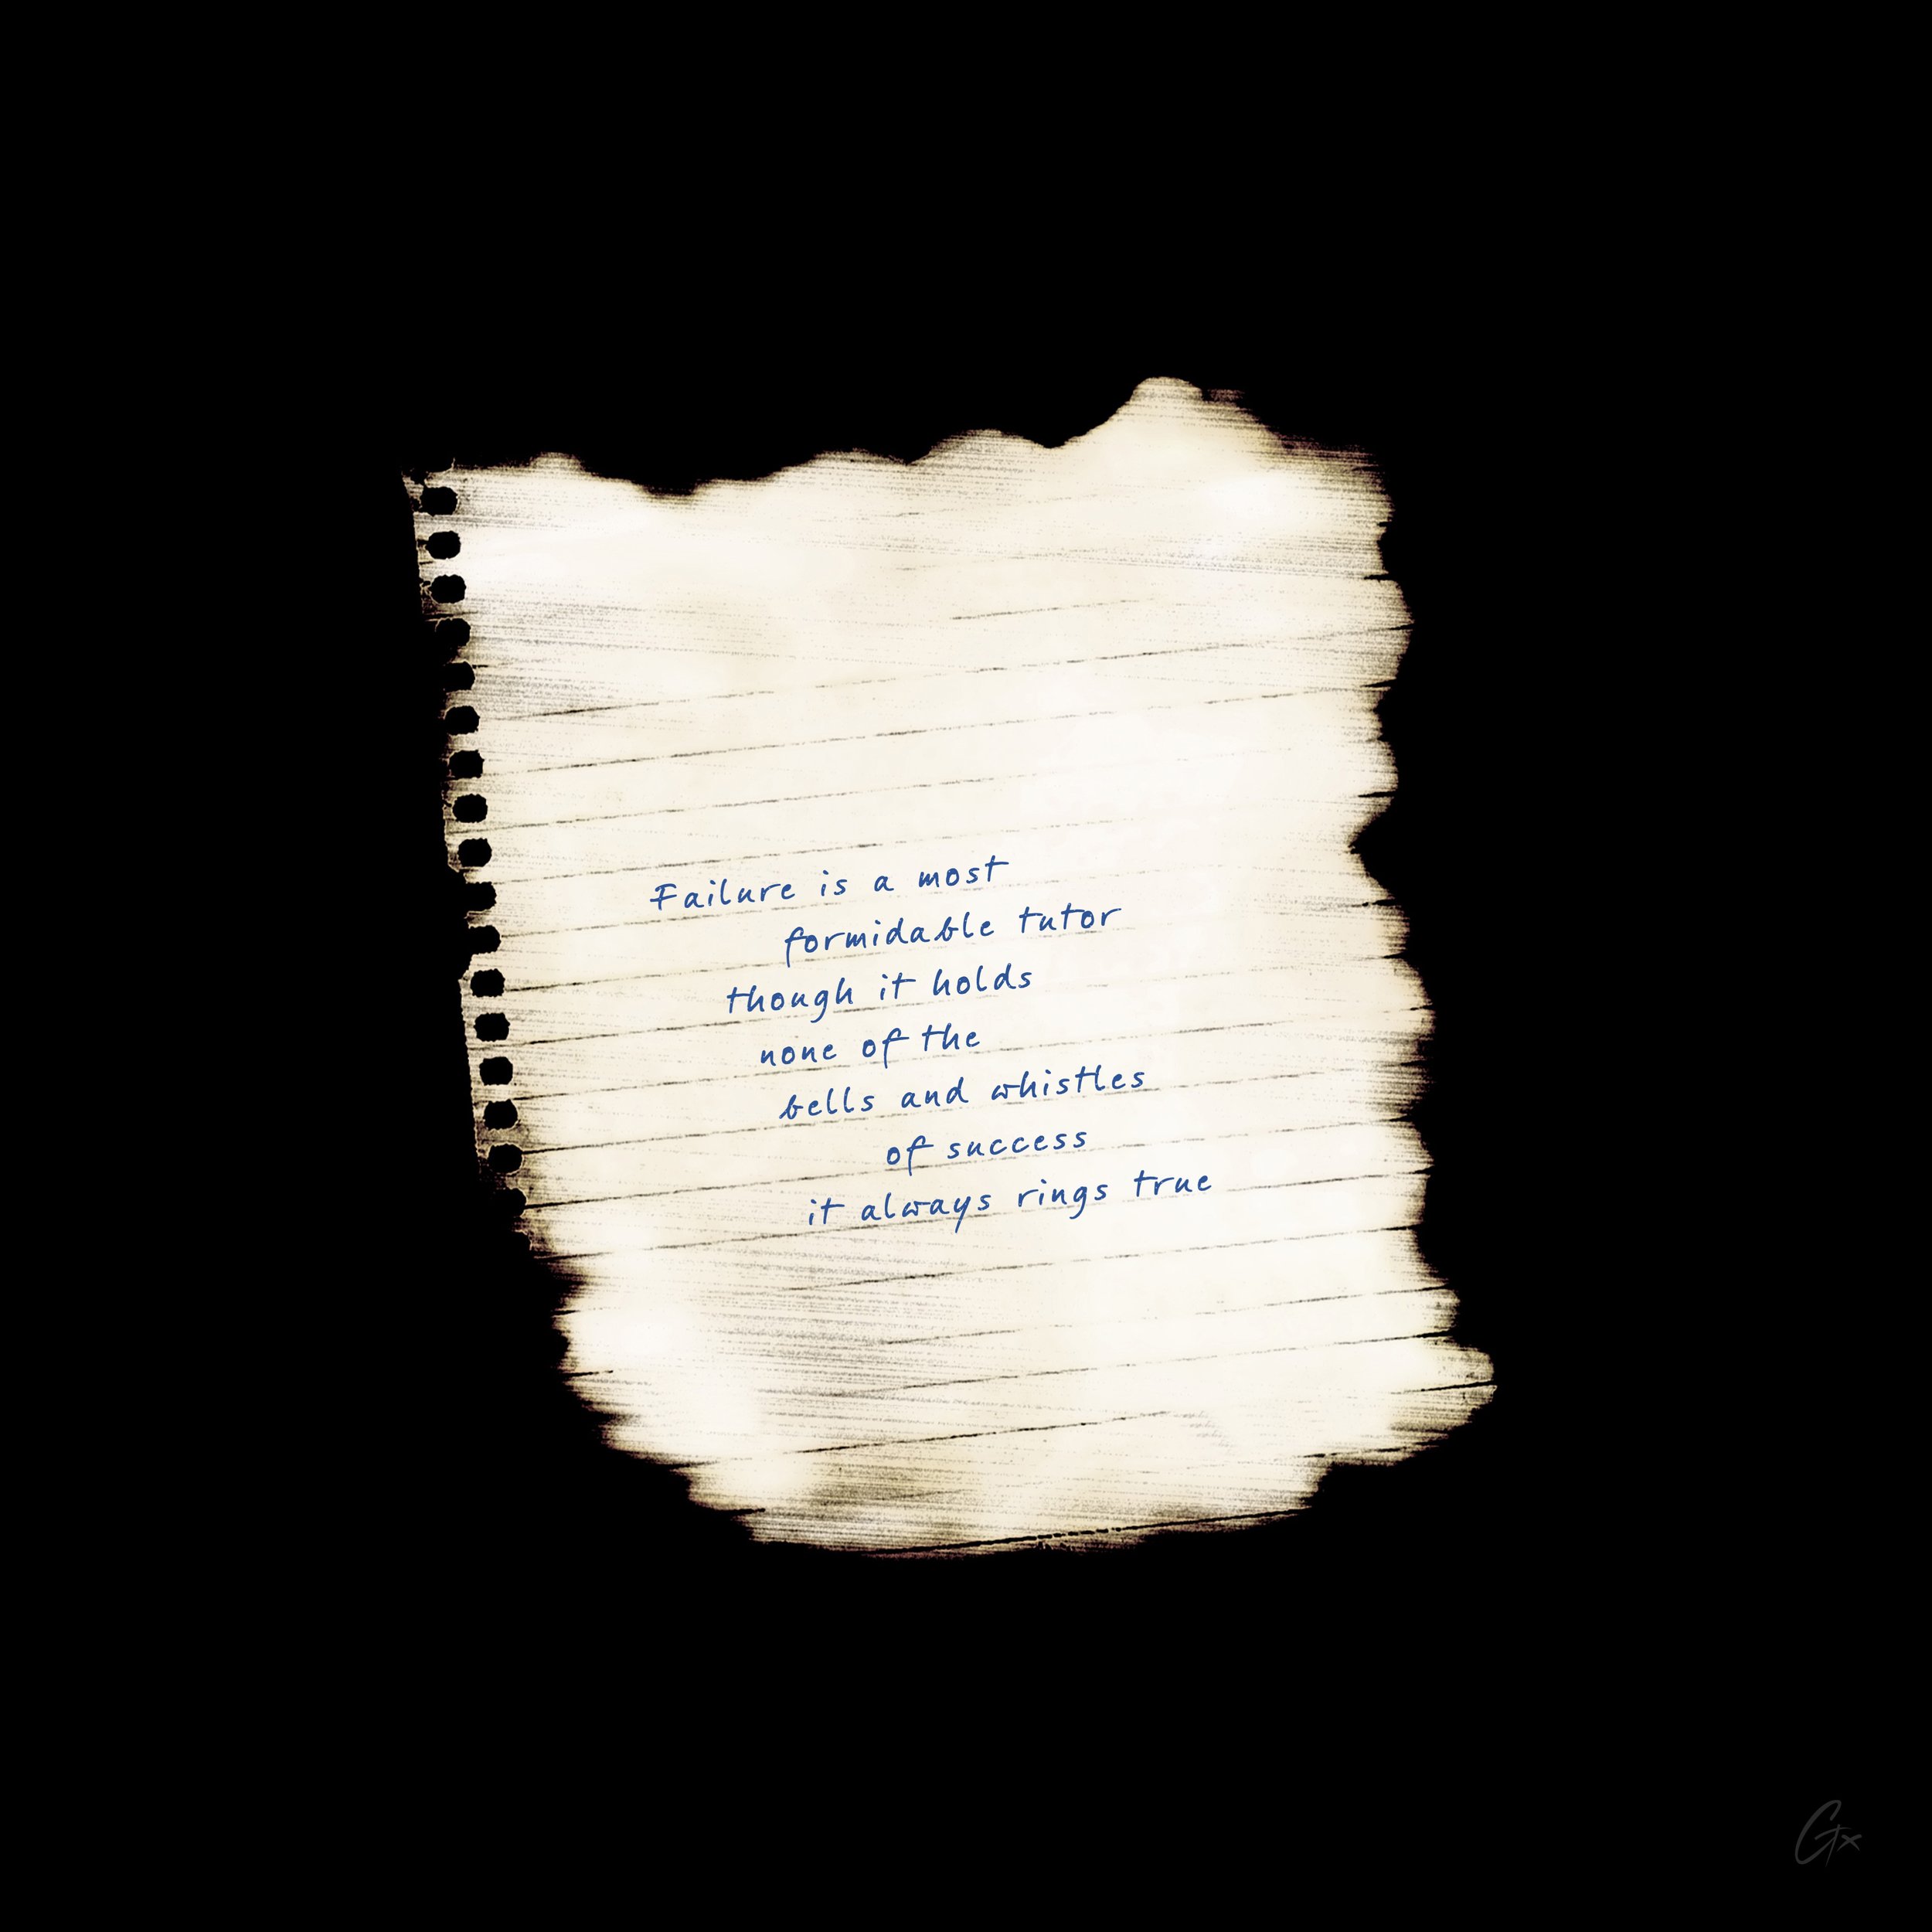 Failure is a most
formidable tutor
though it holds
none of the
bells and whistles
of success
it always rings true
Gx